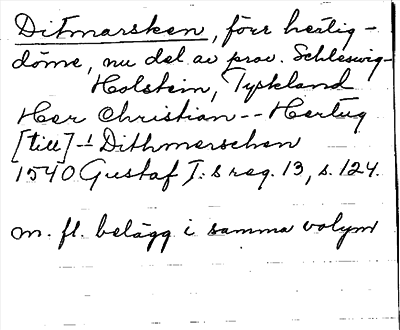 Ditmarsken, förr hertig-
döme, nu del av prov. Schleswig-
Holstein, Tyskland
Her Christian -- Hertug
[till] -- Dithmerschen
1540 Gustaf I:s reg. 13, s. 124.
m. fl. belägg i samma volym